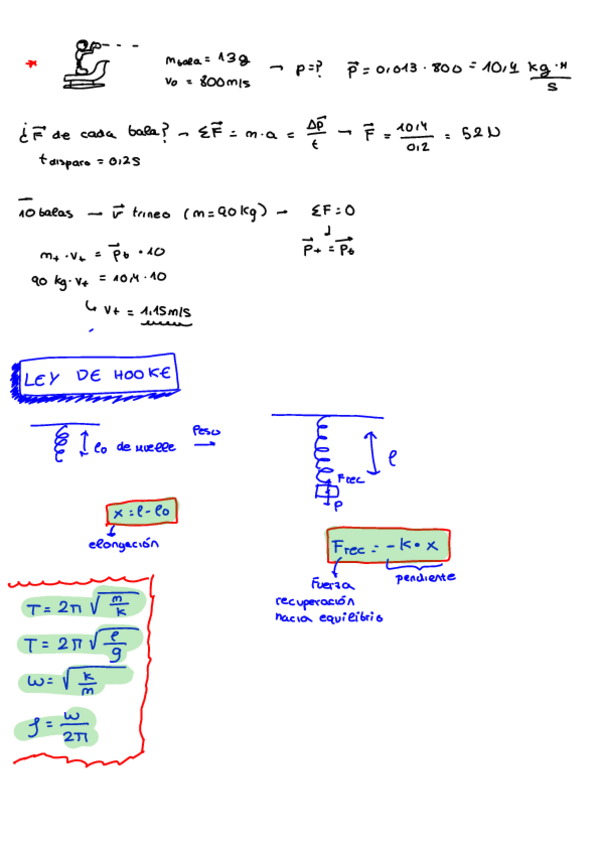 * m bala = 13g → p=? p⃗ = 0,013 · 800 = 10,4 kg·m/s
v₀ = 800m/s
¿F⃗ de cada bala? → ΣF⃗ = m·a = Δp⃗/t → F⃗ = 10,4/0,2 = 52N
t disparo = 0,2s
10 balas → v⃗ trineo (m=90kg) → ΣF=0
m₊·v₊ = p⃗b · 10 p⃗₊ = p⃗b
90 kg·v₊ = 10,4·10
↳ v₊ = 1,15m/s
LEY DE HOOKE
l₀ de muelle Peso → l
Frec
P
x = l - l₀
elongación
Frec = -K · x
Fuerza pendiente
recuperación
hacia equilibrio
T = 2π √(m/k)
T = 2π √(l/g)
ω = √(k/m)
f = ω/2π